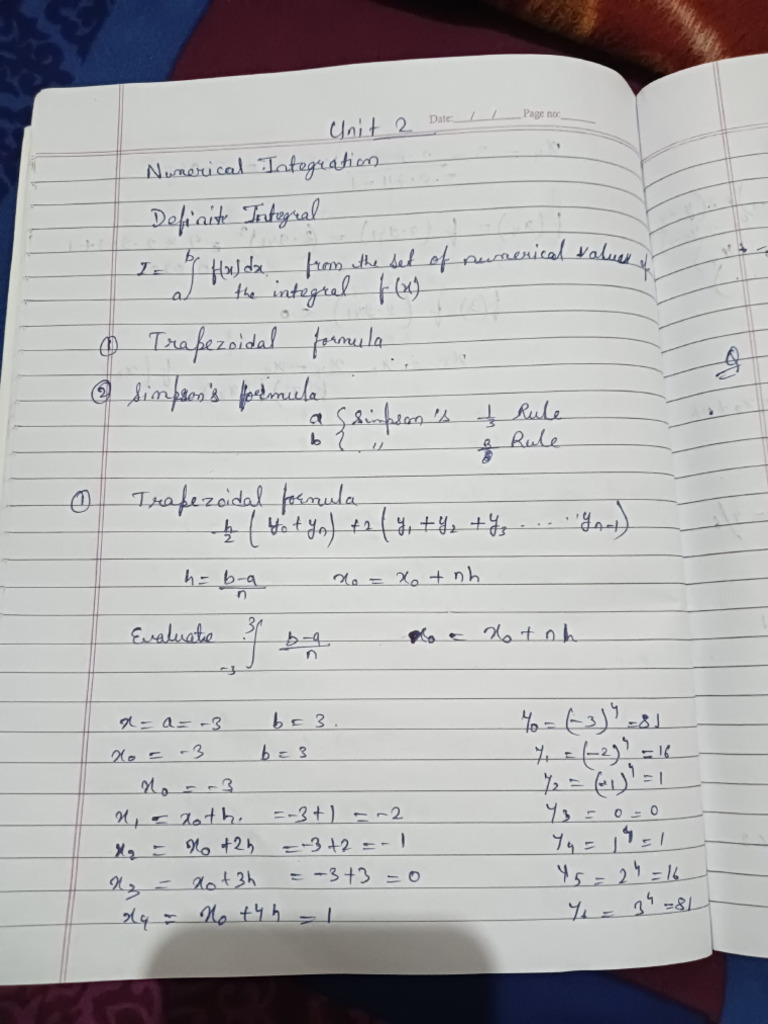 Unit 2 Date: / / Page no:
Numerical Integration
Definite Integral
I = a∫b f(x)dx from the set of numerical values of
the integral f(x)
① Trapezoidal formula
② Simpson's formula
a { Simpson's 1/3 Rule
b { ,, 3/8 Rule
① Trapezoidal formula
h/2 (y₀+yₙ) +2 (y₁+y₂+y₃ ...... yₙ₋₁)
h = b-a/n x₀ = x₀ + nh
Evaluate -3∫3 b-a/n x₀ = x₀ + nh
x = a = -3 b = 3. y₀ = (-3)⁴ = 81
x₀ = -3 b = 3 y₁ = (-2)⁴ = 16
x₀ = -3 y₂ = (-1)⁴ = 1
x₁ = x₀+h. = -3+1 = -2 y₃ = 0 = 0
x₂ = x₀+2h = -3+2 = -1 y₄ = 1⁴ = 1
x₃ = x₀+3h = -3+3 = 0 y₅ = 2⁴ = 16
x₄ = x₀+4h = 1 y₆ = 3⁴ = 81
Q